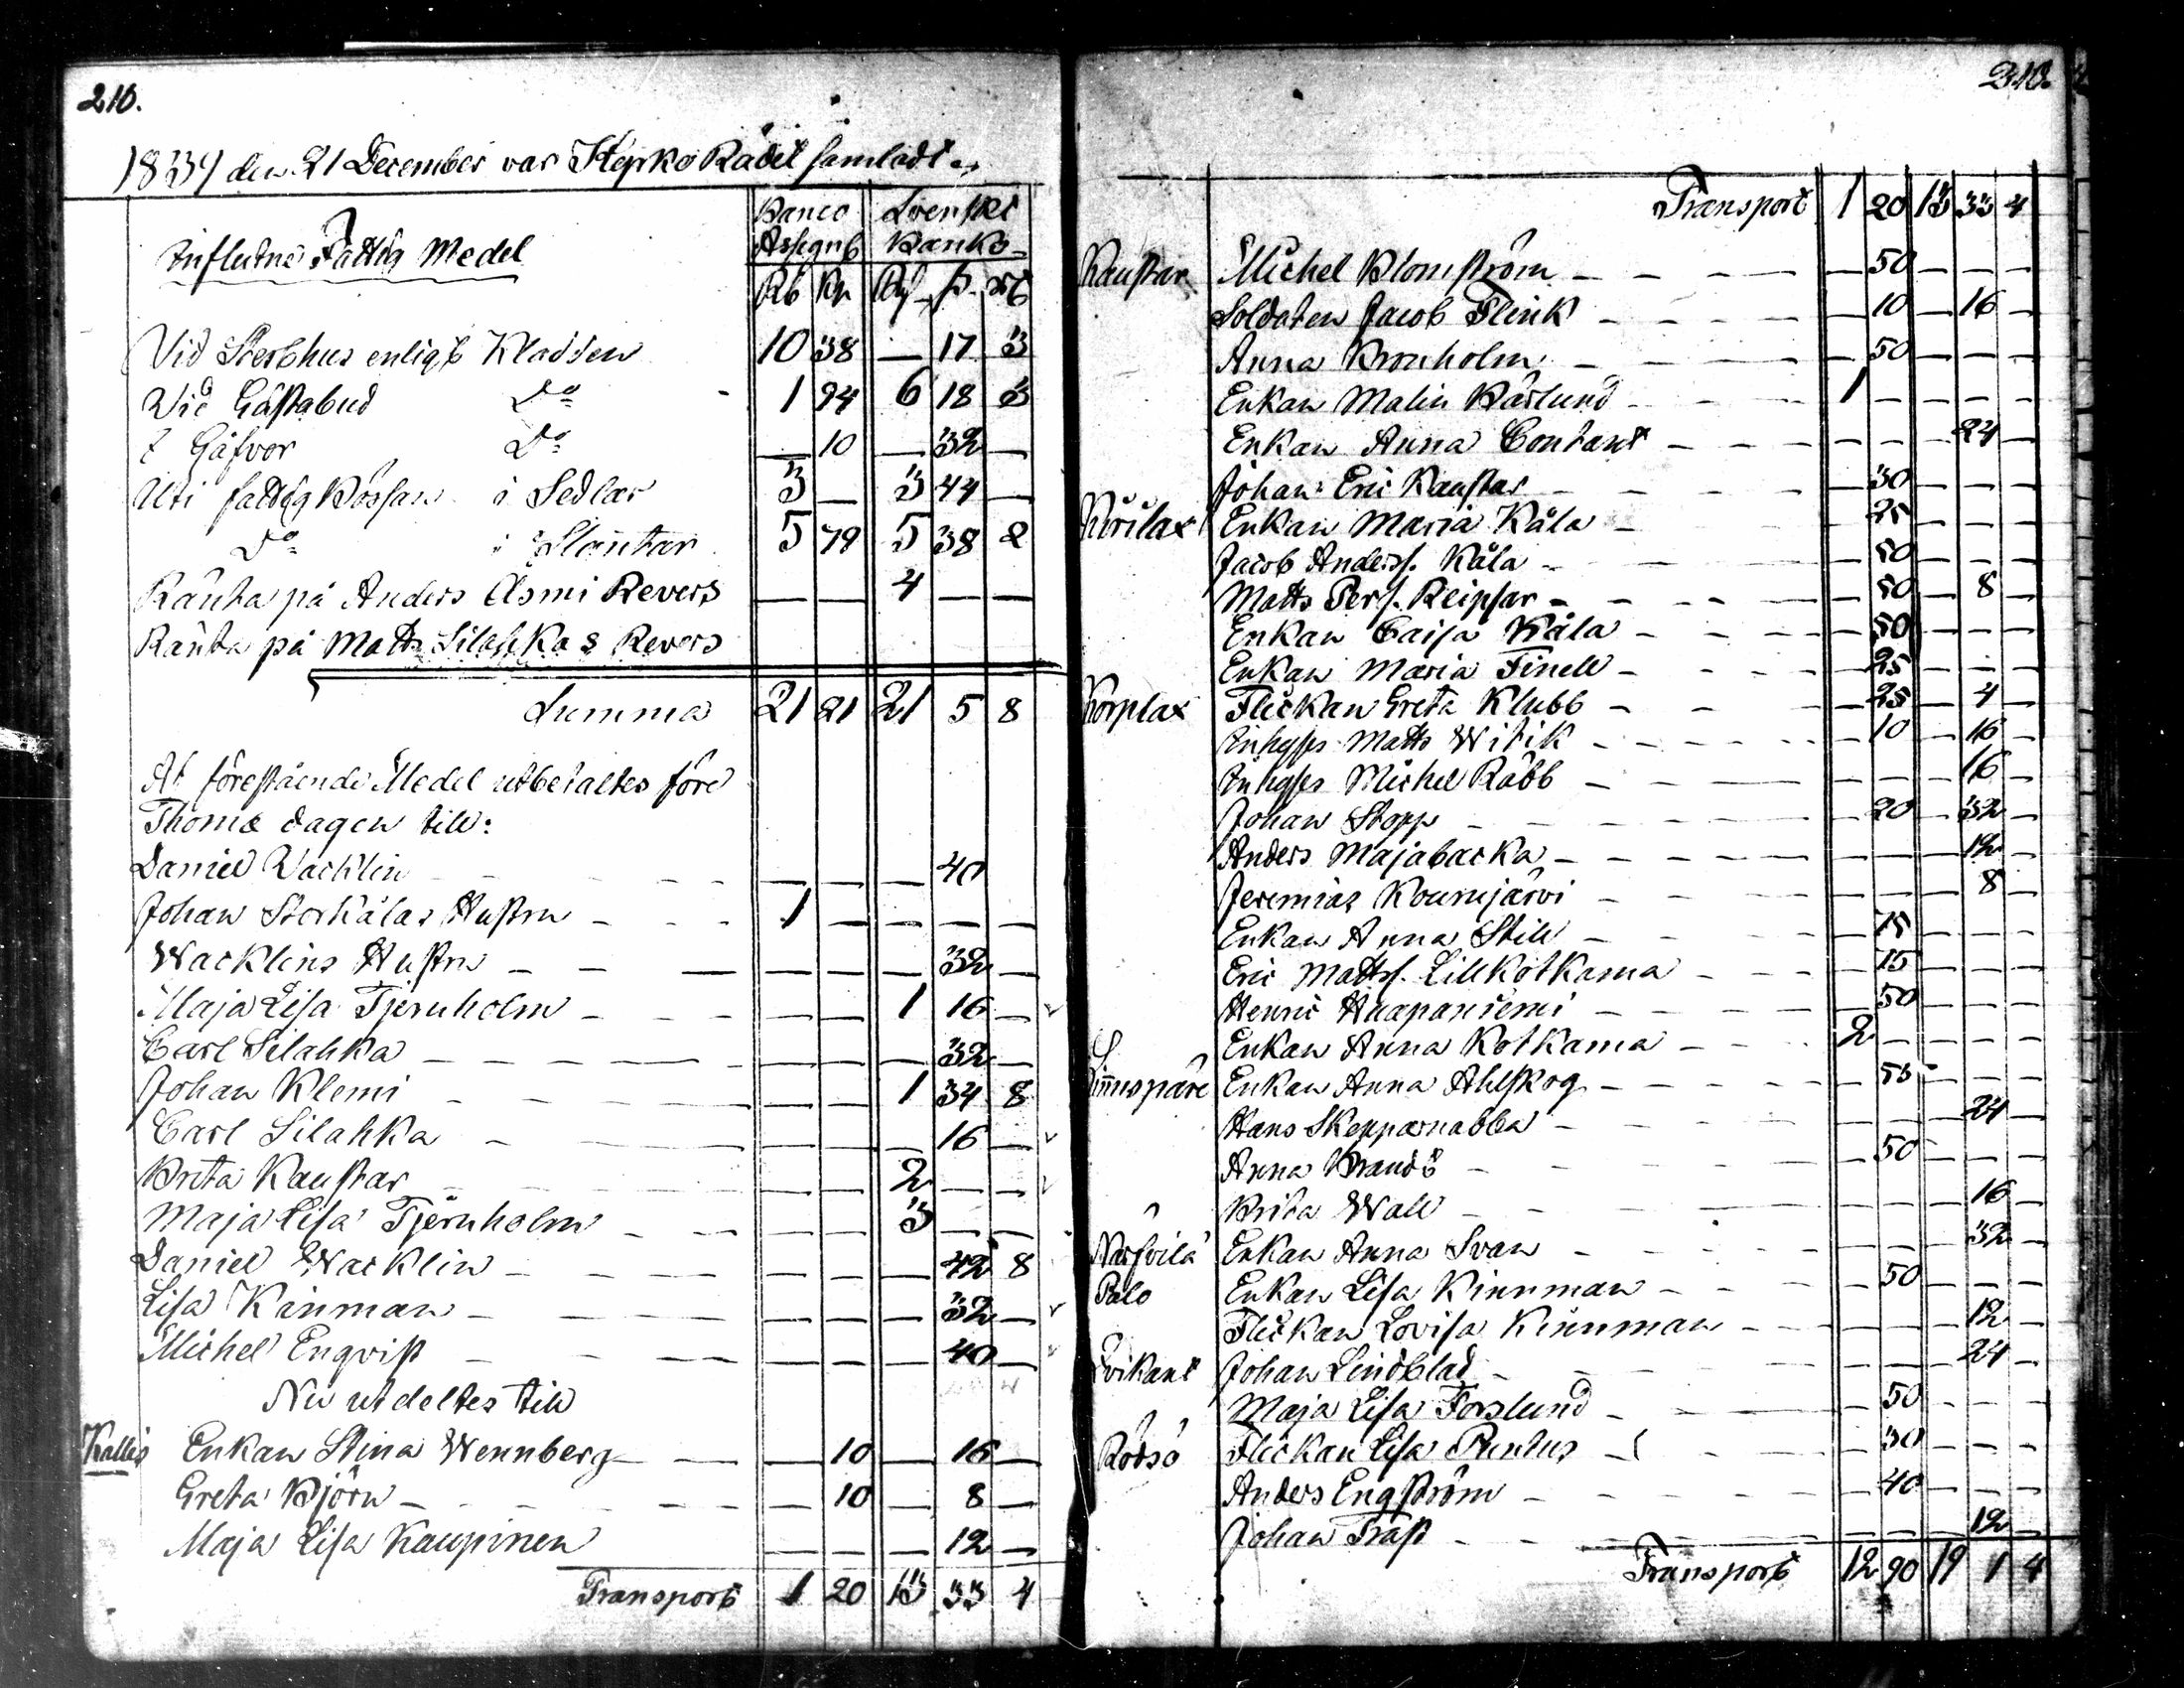 210.
1834 den 21 December var Kyrko Rådet samladt.
Influtne Fattig Medel
Banco Assignb Svenskt Banko
Rb Kp Rd ß rst
Vid Sterbhus enligt Kladden 10 38 — 17 3
Vid Gästabud Do 1 94 6 18 3
I Gåfvor Do — 10 — 32 —
Uti fattig Bössan i Sedlar 3 — 3 44 —
Do i Slantar 5 79 5 38 2
Ränta på Anders Asmi Revers — — 4 — —
Ränta på Matts Silahkas Revers
Summa 21 21 21 5 8
Af förestående Medel utbetaltes före
Thomæ dagen till:
Daniel Wacklin — — — 40
Johan Storkålas Hustru 1 — — — —
Wacklins Hustru — — — 32 —
Maja Lisa Tjernholm — — 1 16 —
Carl Silahka — — — 32 —
Johan Klemi — — 1 34 8
Carl Silahka — — — 16 —
Brita Kaustar — — 2 — —
Maja Lisa Tjernholm — — 3 — —
Daniel Wacklin — — — 42 8
Lisa Kinman — — — 32 —
Michel Enqvist — — — 40 —
Nu utdeltes till
Kallis Enkan Stina Wennberg — 10 — 16 —
Greta Björn — 10 — 8 —
Maja Lisa Kaupinen — — — 12 —
Transport 1 20 13 33 4
210.
Transport 1 20 13 33 4
Kaustar Michel Blomström — 50 — — —
Soldaten Jacob Flink — 10 — 16 —
Anna Kronholm — 50 — — —
Enkan Malin Kårlund 1 — — — —
Enkan Anna Contant — — — 24 —
Johan Eric Kaustar — 30 — — —
Kirilax Enkan Maria Kåla — 25 — — —
Jacob Anderss. Kåla — 50 — — —
Matts Pers. Reipsar — 50 — 8 —
Enkan Caisa Kåla — 50 — — —
Enkan Maria Finell — 25 — — —
Korplax Flickan Greta Klubb — 25 — 4 —
Inhyses Matts Witik — 10 — 16 —
Inhyses Michel Rabb — — — 16 —
Johan Stopp — 20 — 32 —
Anders Majabacka — — — 12 —
Jeremias Kounujärvi — — — 8 —
Enkan Anna Still — 15 — — —
Eric Matts. Lillkotkama — 15 — — —
Henric Haapaniemi — 50 — — —
Enkan Anna Kotkama 2 — — — —
Linnuspäre Enkan Anna Ahlskog — 55 — — —
Hans Skepparnabba — — — 24 —
Anna Brandt — 50 — — —
Brita Wall — — — 16 —
Narfvilä Enkan Anna Svan — — — 32 —
Palo Enkan Lisa Kinnman — 50 — — —
Flickan Lovisa Kinnman — — — 12 —
Evikant Johan Lindblad — — — 24 —
Maja Lisa Forslund — 50 — — —
Rödsö Flickan Lisa Pentus — 30 — — —
Anders Engström — 40 — — —
Johan Trast — — — 12 —
Transport 12 90 19 1 4